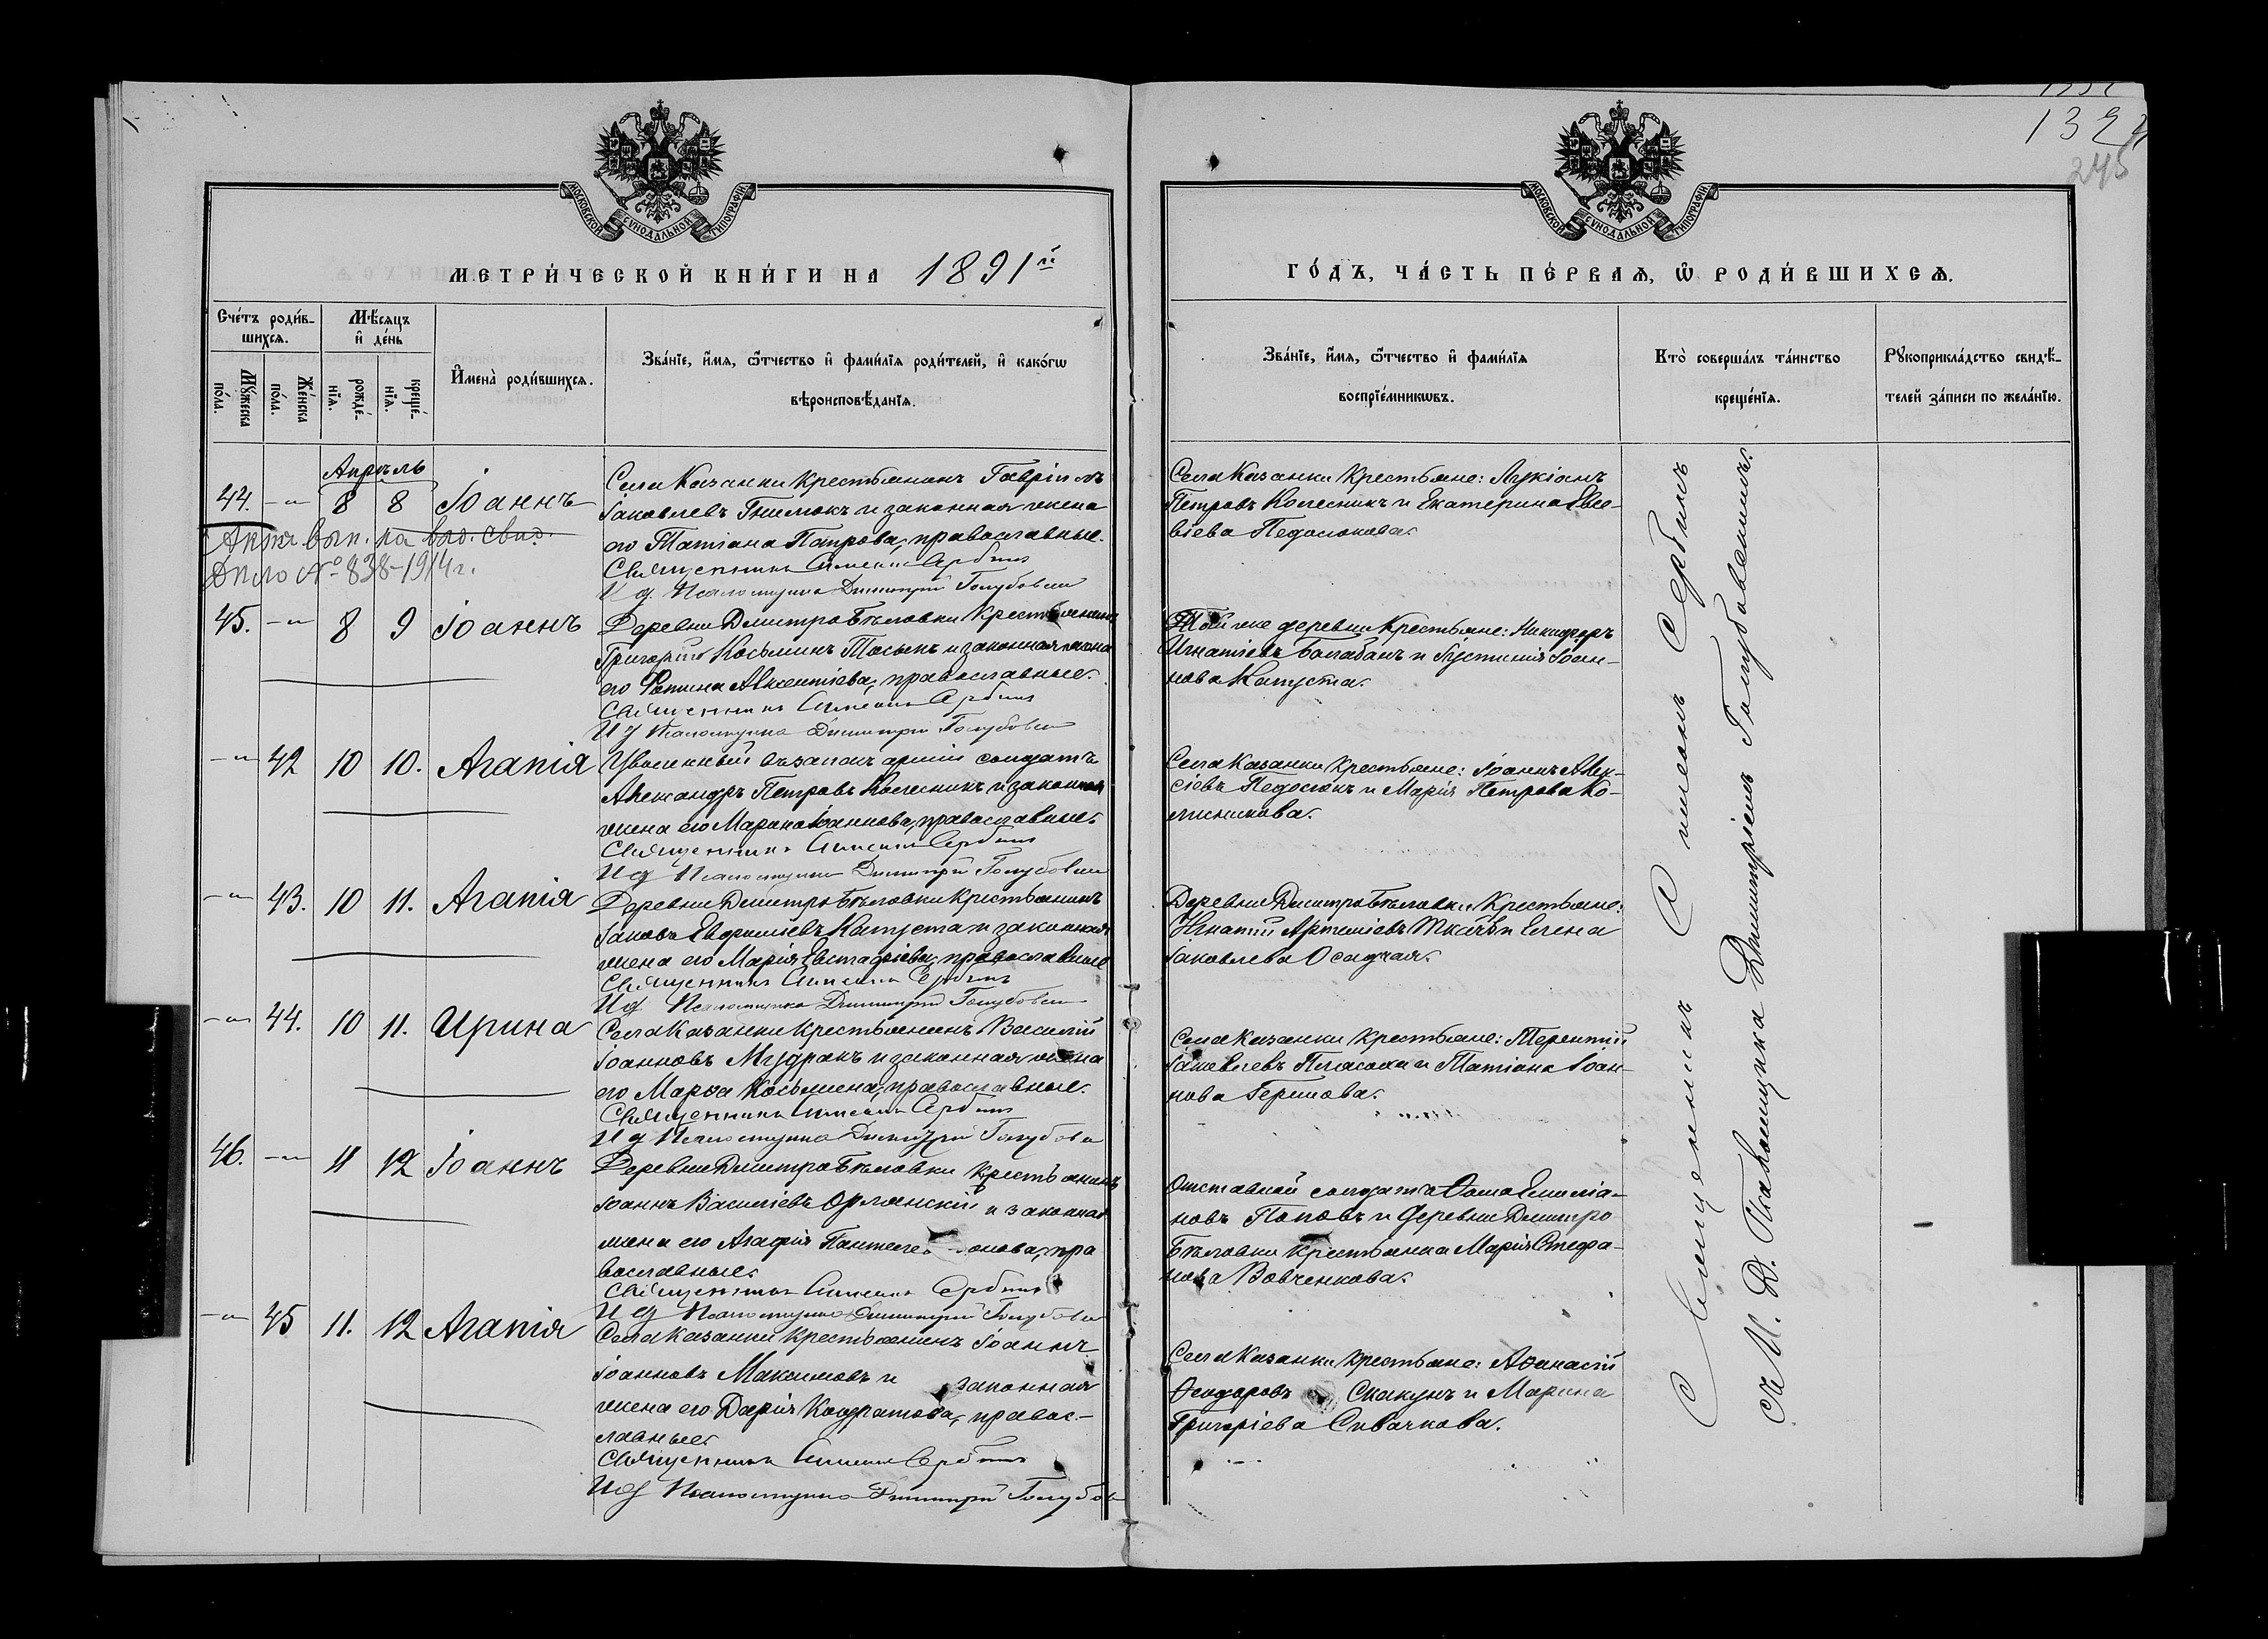 1324
245
МОСКОВСКОЙ СѴНОДАЛЬНОЙ ТИПОГРАФІИ
МОСКОВСКОЙ СѴНОДАЛЬНОЙ ТИПОГРАФІИ
МЕТРИ́ЧЕСКОЙ КНИ́ГИ НА 1891й
ГО́ДЪ, ЧА́СТЬ ПЕ́РВАѦ, Ѽ РОДИ́ВШИХСѦ.
Счє́тъ роди́в-
шихсѧ.
Мѣ́сѧцъ
и҆ де́нь
Мꙋ́жеска
по́ла.
Же́нска
по́ла.
рожде́-
нїѧ.
креще́-
нїѧ.
И҆мена̀ роди́вшихсѧ.
Зва́нїе, и҆́мѧ, ѻ҆́тчество и҆ фами́лїѧ роди́телей, и҆ како́гѡ
вѣроисповѣ́данїѧ.
Зва́нїе, и҆́мѧ, ѻ҆́тчество и҆ фами́лїѧ
воспрїе́мникѡвъ.
Кто̀ соверша́лъ та́инство
креще́нїѧ.
Рꙋкоприкла́дство свидѣ́-
телей за́писи по жела́нїю.
Апрѣль
44. -"- 8 8 Іоаннъ
Села Казанки крестьянинъ Гавріилъ
Іаковлевъ Гнилюкъ и законная жена
его Татіана Петрова, православные.
Священникъ Симеонъ Сербинъ
И д. Псаломщика Димитрій Голубович
Села Казанки крестьяне: Лукіанъ
Петровъ Колесникъ и Екатерина Евсе-
віева Педосюкова.
вып.
Дѣло № 838-1914 г.
45. -"- 8 9 Іоаннъ
Деревни Дмитро Бѣловки крестьянинъ
Григорій Косьминъ и законная жена
его Фотина Авксентіева, православные.
Священникъ Симеонъ Сербинъ
И д Псаломщика Димитрій Голубович
Той же деревни крестьяне: Никифоръ
Игнатіевъ Балабанъ и Іустинія Іоан-
нова Капуста.
-"- 42 10 10. Агапія
Уволенный въ запасъ арміи солдатъ
Александръ Петровъ Колесникъ и законная
жена его Марина Іоаннова, православные.
Священникъ Симеонъ Сербинъ
И д Псаломщика Димитрій Голубович
Села Казанки крестьяне: Іоаннъ Алек-
сіевъ Педосюкъ и Марія Петрова Ко-
лесникова.
-"- 43. 10 11. Агапія
Деревни Дмитро Бѣловки крестьянинъ
Іаковъ Евфиміевъ Капуста и законная
жена его Марія Евстафіева, православные
Священникъ Симеонъ Сербинъ
И д. Псаломщика Димитрій Голубович
Деревни Дмитро Бѣловки крестьяне:
Игнатій Артеміевъ Ткачъ и Елена
Іаковлева Осадчая.
-"- 44. 10 11. Ирина
Села Казанки крестьянинъ Василій
Іоанновъ Мудракъ и законная жена
его Марѳа Косьмина, православные.
Священникъ Симеонъ Сербинъ
И д Псаломщика Димитрій Голубович
Села Казанки крестьяне: Терентій
Іаковлевъ и Татіана Іоан-
нова Герилова.
46. -"- 11 12 Іоаннъ
Деревни Дмитро Бѣловки крестьянинъ
Іоаннъ Василіевъ Орлянскій и законная
жена его Агафія Пантелеимонова, пра
вославные.
Священникъ Симеонъ Сербинъ
И д Псаломщика Димитрій Голубович
Отставной солдатъ Ѳома Емиліа-
новъ Поповъ и деревни Дмитро
Бѣловки крестьянка Марія Стефа-
нова Вовченкова.
-"- 45 11. 12 Агапія
Села Казанки крестьянинъ Іоаннъ
Іоанновъ Максимовъ и законная
жена его Дарія Кодратова, правос-
лавные.
Священникъ Симеонъ Сербинъ
И д Псаломщика Димитрій Голубов
Села Казанки крестьяне: Аѳанасій
Ѳеодоровъ Скакунъ и Марина
Григоріева Сивачкова.
Священникъ Симеонъ Сербинъ
съ И. Д. Псаломщика Димитріемъ Голубовичемъ.